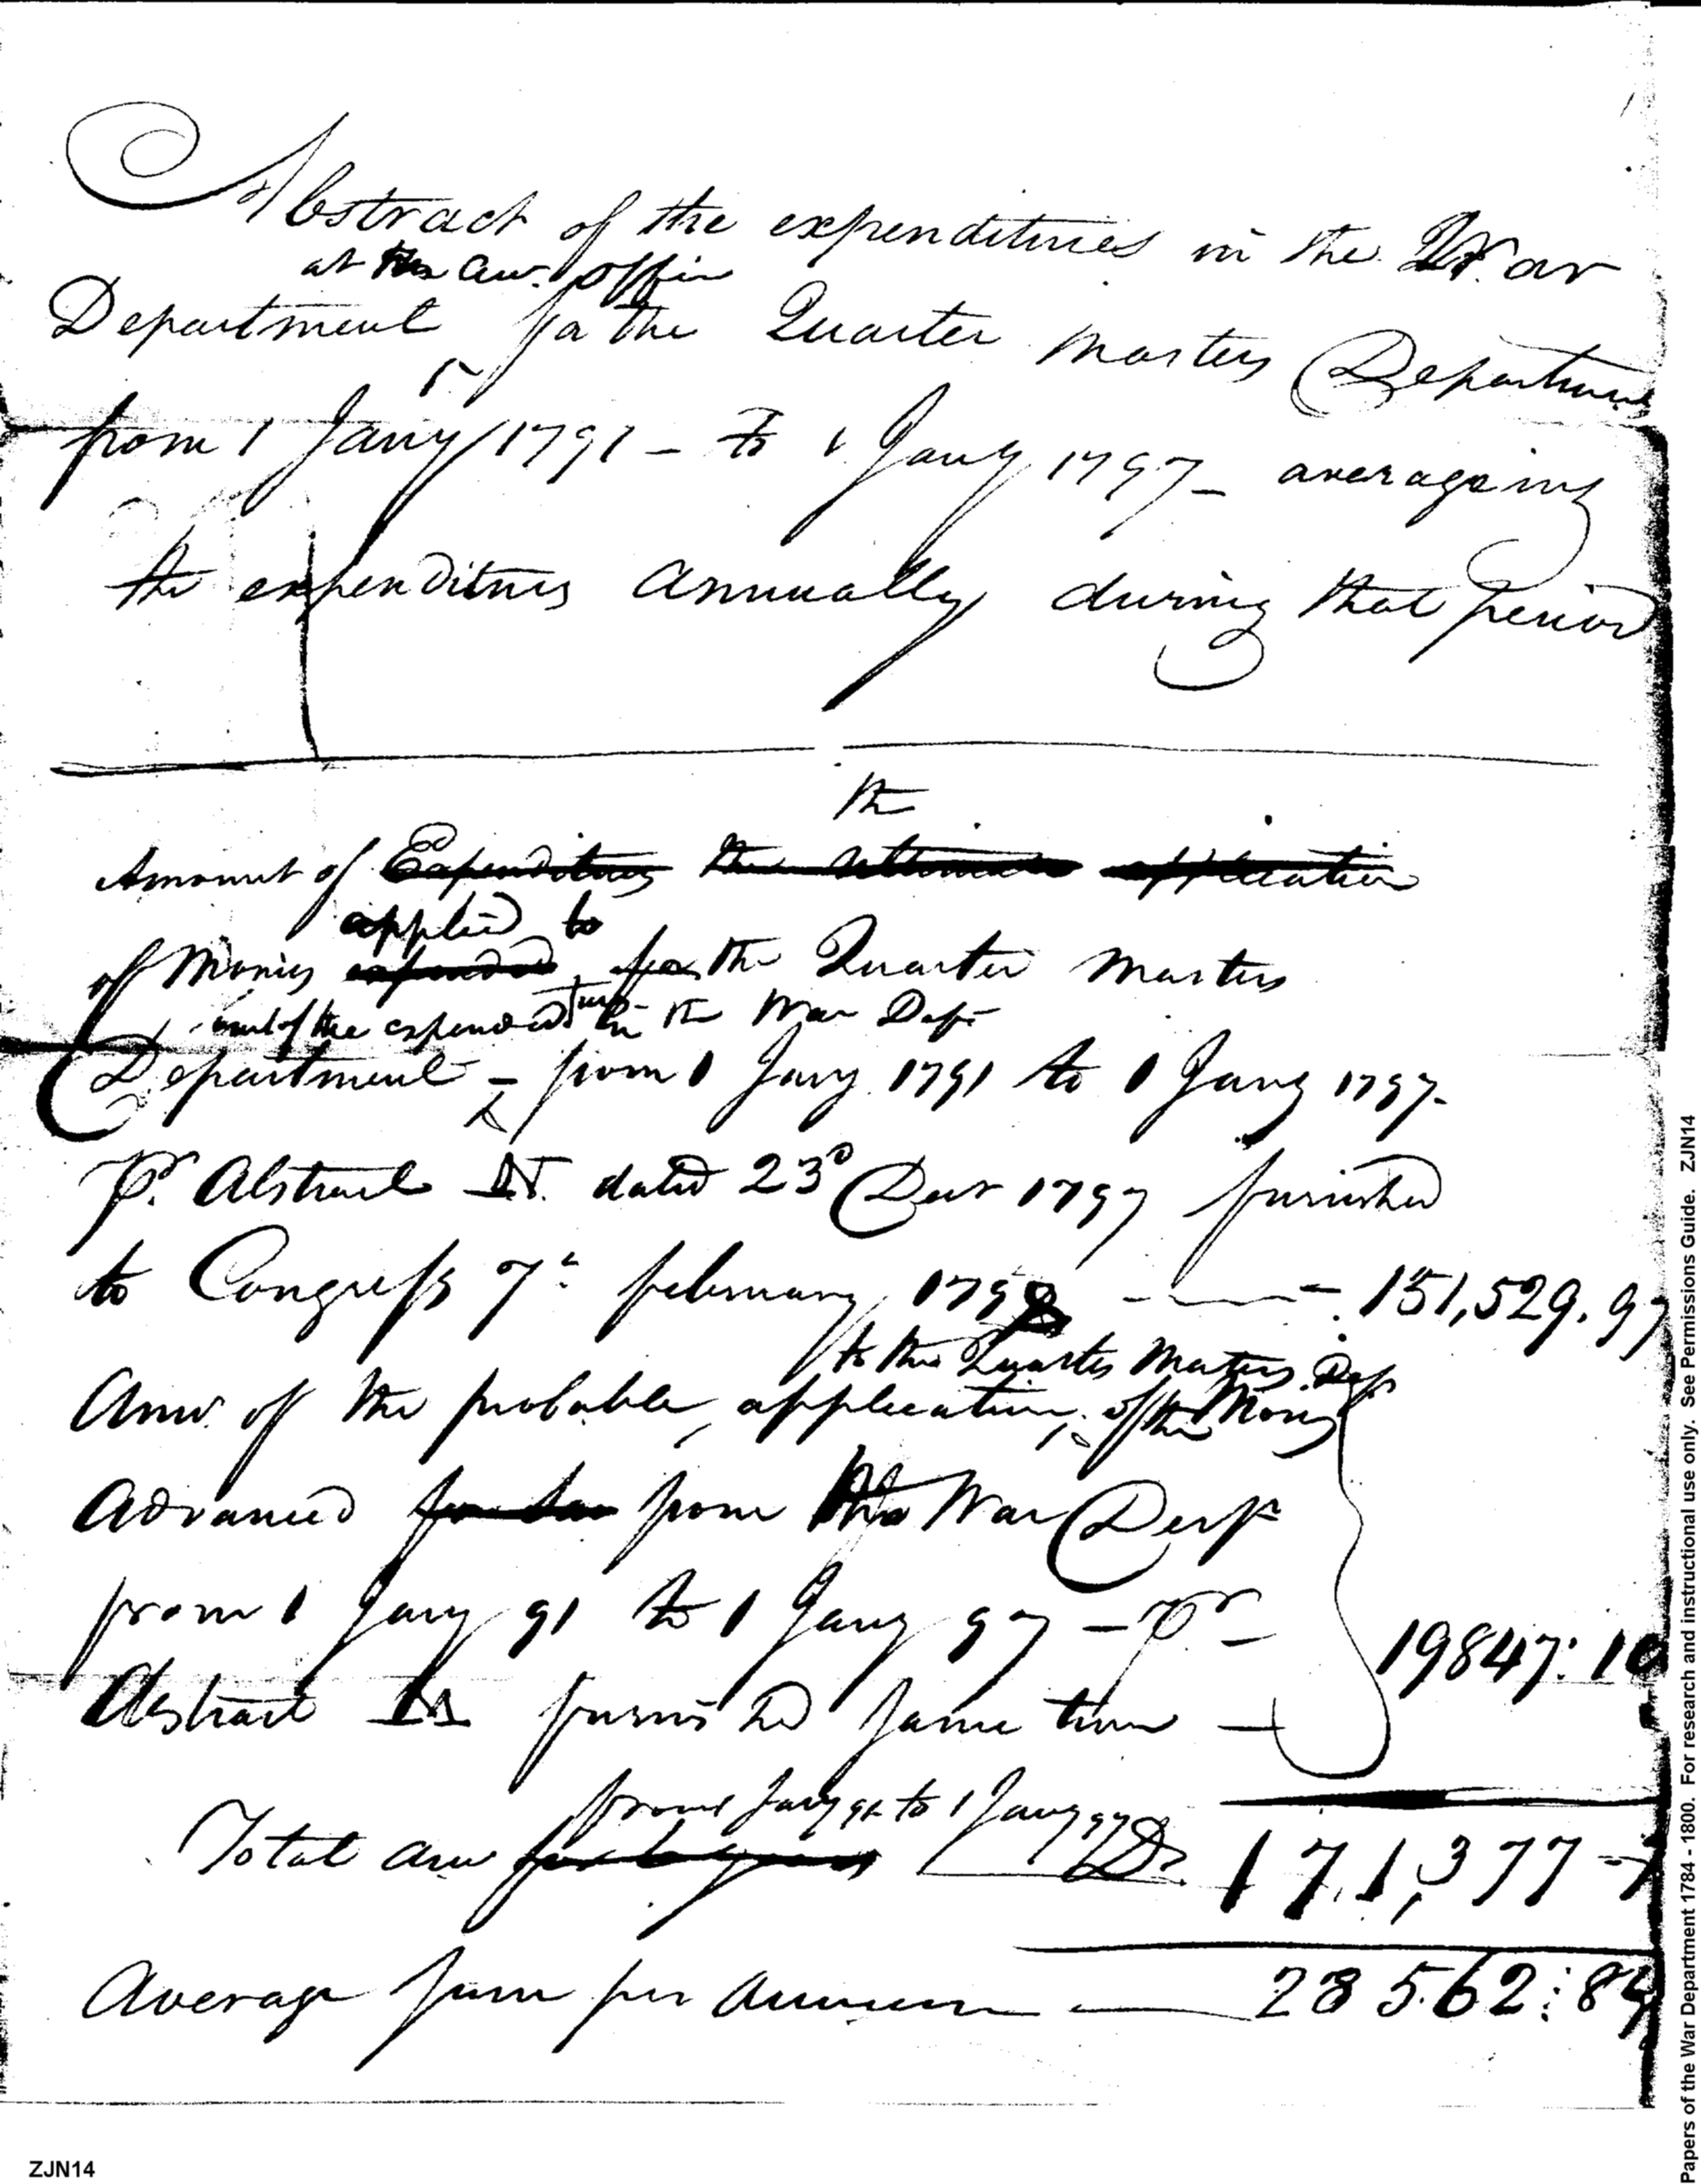 Abstract of the expenditures in the War
at the
Department for the Quarter Masters Department
from 1 Jany 1791 - to 1 Jany 1797 - averageing
the expenditures annually during that period
the
Amount of Expenditures the ultimate application
applied to
of Monies expended for the Quarter Masters
out of the expenditures in the War Dept
Department - from 1 Jany 1791 to 1 Jany 1797-
Pr. Abstract dated 23d Decr 1797 furnished
to Congress 7th february 1798 - 151,529.97
to the Quarter Masters Dept
Amt. of the probable application of the Money
Advanced from the War Dept
from 1 Jany 91 to 1 Jany 97 - Pr - 19847:10
Abstract furnished same time
from 1 Jany 91 to 1 Jany 97
Total amt Ds. 171,377-7
Average sum per Annum - 28562:84
ZJN14
Papers of the War Department 1784 - 1800. For research and instructional use only. See Permissions Guide. ZJN14